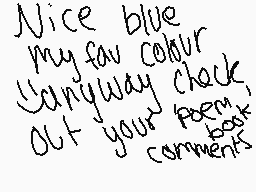 Nice blue
my fav colour
:)anyway check
out your 'poem'
book
comments